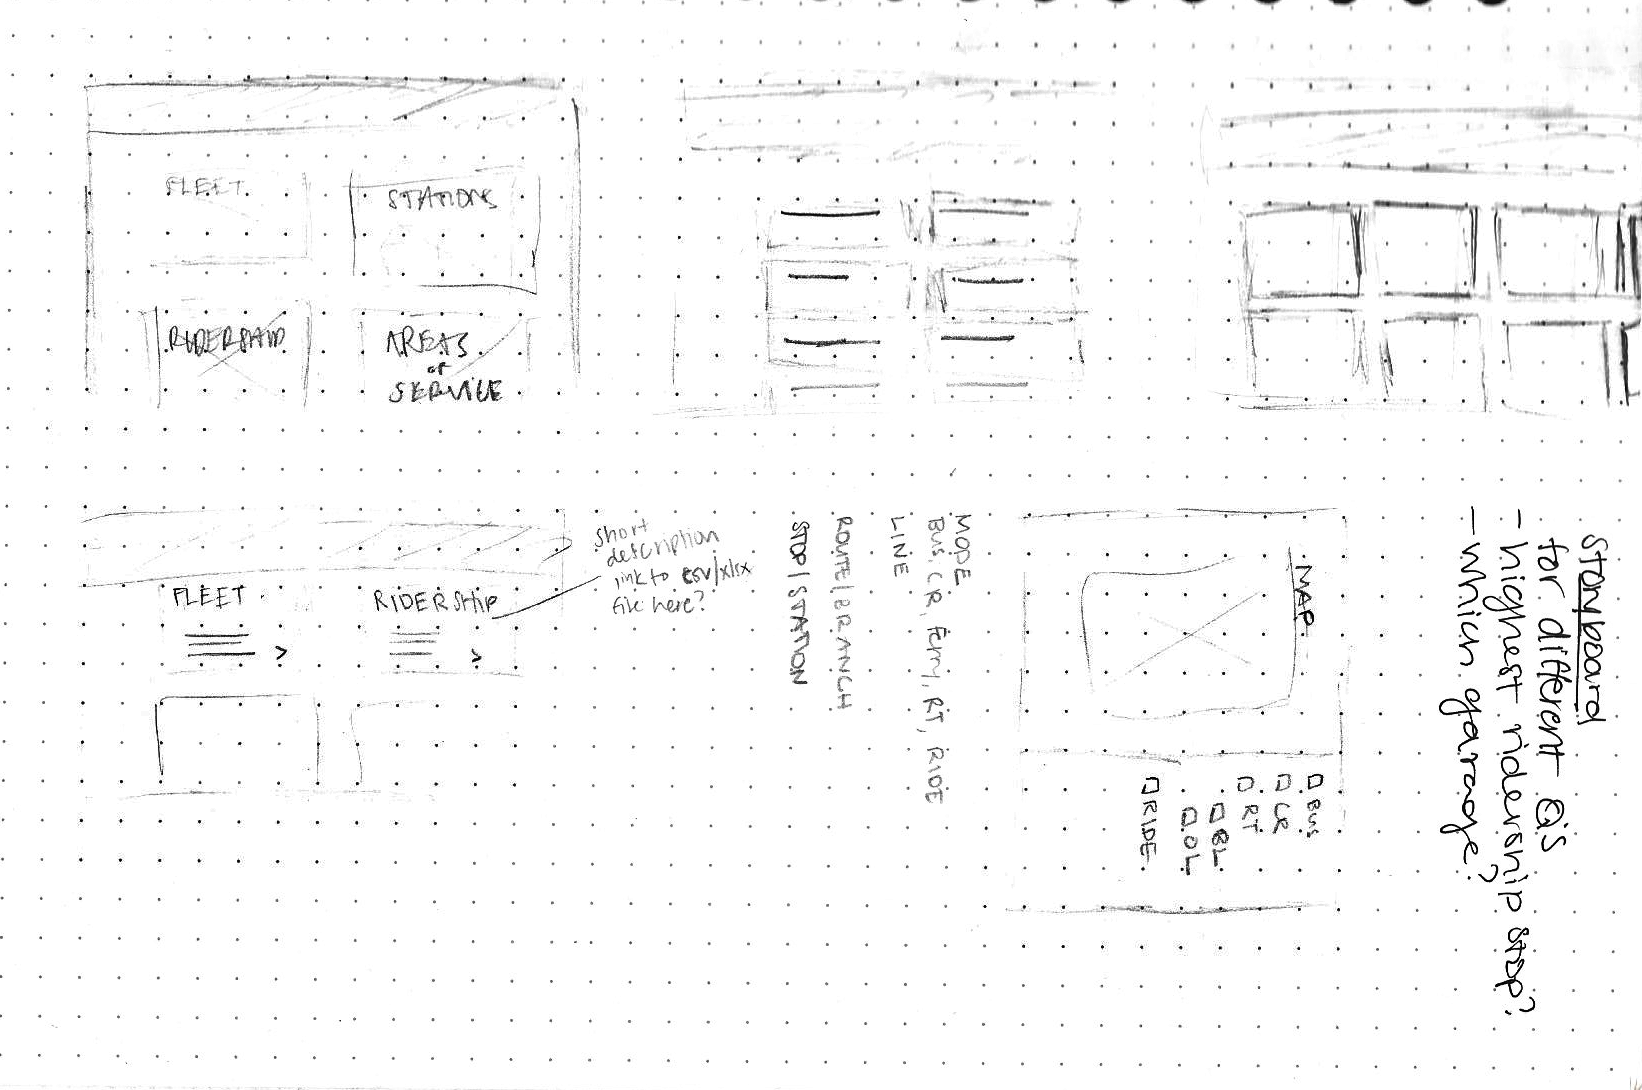 FLEET
STATIONS
RIDERSHIP
AREAS
OF
SERVICE
FLEET
RIDERSHIP
>
>
short
description
link to csv/xlsx
file here?
MODE
Bus, CR, Ferry, RT, RIDE
LINE
ROUTE/BRANCH
STOP/STATION
MAP
Bus
CR
RT
BL
OL
RIDE
Storyboard
for different Q's
- highest ridership stop?
- which garage?